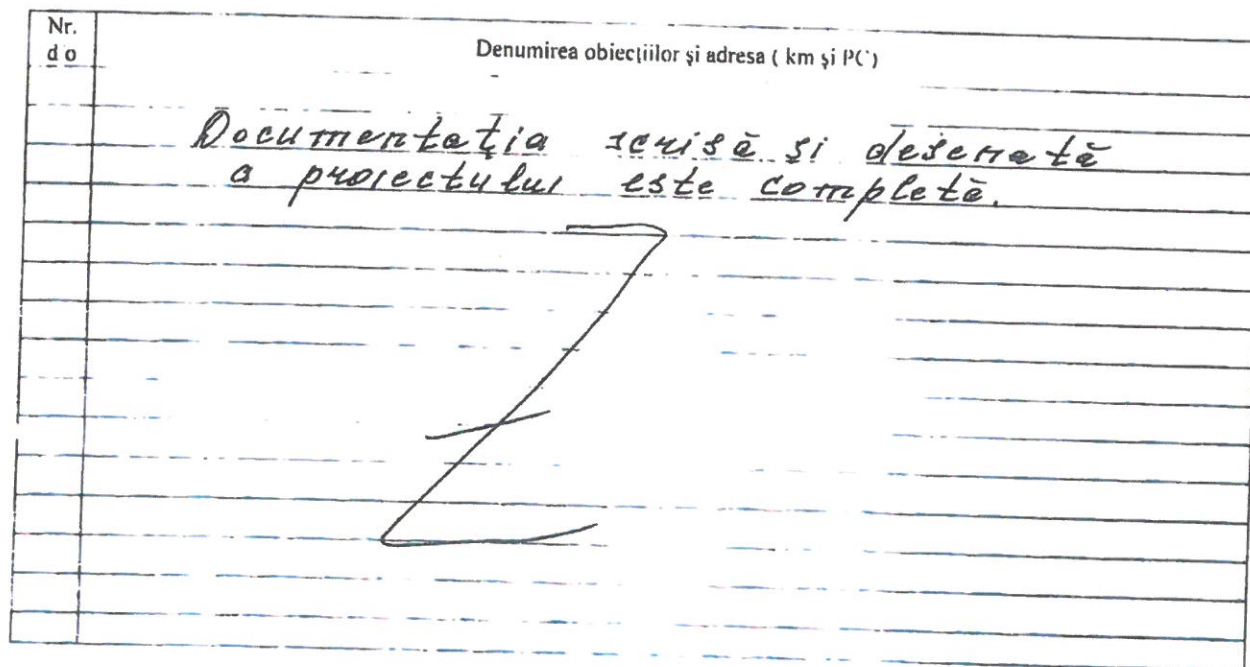 Nr.
d o
Denumirea obiecțiilor și adresa ( km și PC )
Documentația scrisă și desenată
a proiectului este completă.